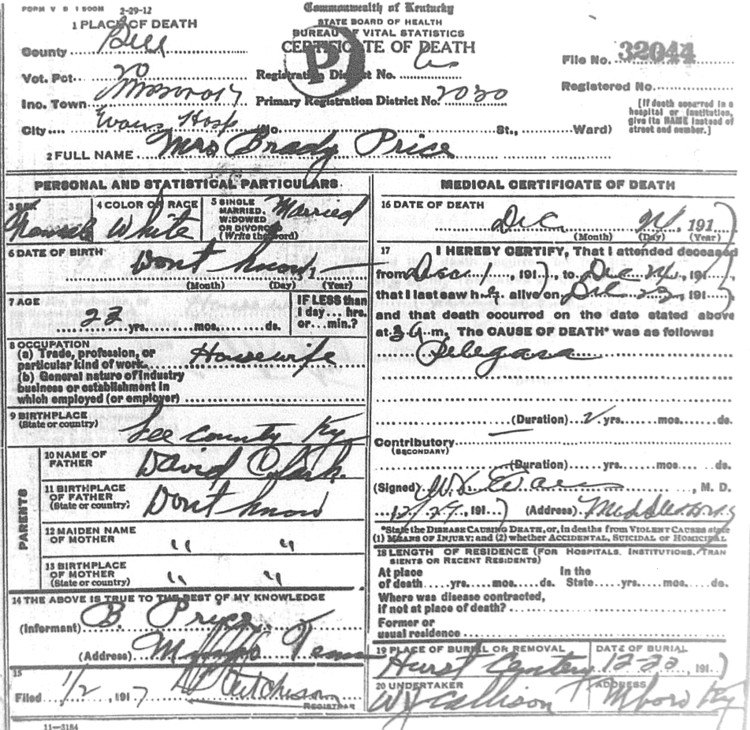 FORM V D 1 500M 2-29-12
Commonwealth of Kentucky
STATE BOARD OF HEALTH
BUREAU OF VITAL STATISTICS
CERTIFICATE OF DEATH
P
1 PLACE OF DEATH
County Bell
Vot. Pct. 20
Ino. Town
City Evans Hosp No. St., Ward)
Registration District No.
Primary Registration District No. 7020
File No. 32044
Registered No.
[If death occurred in a hospital or institution, give its NAME instead of street and number.]
2 FULL NAME Mrs Brady Price
PERSONAL AND STATISTICAL PARTICULARS
3 SEX Female
4 COLOR OR RACE White
5 SINGLE, MARRIED, WIDOWED OR DIVORCED (Write the word) Married
6 DATE OF BIRTH Dont know, 1
(Month) (Day) (Year)
7 AGE 23 yrs. mos. ds.
IF LESS than 1 day... hrs. or... min.?
8 OCCUPATION
(a) Trade, profession, or particular kind of work Housewife
(b) General nature of industry business or establishment in which employed (or employer)
9 BIRTHPLACE (State or country) Lee County Ky
PARENTS
10 NAME OF FATHER David Clark
11 BIRTHPLACE OF FATHER (State or country) Dont know
12 MAIDEN NAME OF MOTHER " "
13 BIRTHPLACE OF MOTHER (State or country) " "
14 THE ABOVE IS TRUE TO THE BEST OF MY KNOWLEDGE
(Informant) B. Price
(Address) Tenn
15
Filed 1/2, 1917 Hutchison
REGISTRAR
11—3184
MEDICAL CERTIFICATE OF DEATH
16 DATE OF DEATH Dec 24, 1917
(Month) (Day) (Year)
17 I HEREBY CERTIFY, That I attended deceased
from Dec 1, 1917, to Dec 24, 1917
that I last saw her alive on Dec 23, 1917
and that death occurred on the date stated above
at 3 a m. The CAUSE OF DEATH* was as follows:
Pelegara
(Duration) 2 yrs. mos. ds.
Contributory (SECONDARY)
(Duration) yrs. mos. ds.
(Signed) Evans, M. D.
12/29, 1917 (Address)
*State the DISEASE CAUSING DEATH, or, in deaths from VIOLENT CAUSES state
(1) MEANS OF INJURY; and (2) whether ACCIDENTAL, SUICIDAL or HOMICIDAL
18 LENGTH OF RESIDENCE (FOR HOSPITALS, INSTITUTIONS, TRANSIENTS OR RECENT RESIDENTS)
At place of death yrs. mos. ds. In the State yrs. mos. ds.
Where was disease contracted, if not at place of death?
Former or usual residence
19 PLACE OF BURIAL OR REMOVAL
DATE OF BURIAL
Hurst 191
20 UNDERTAKER
ADDRESS
Mboro Ky